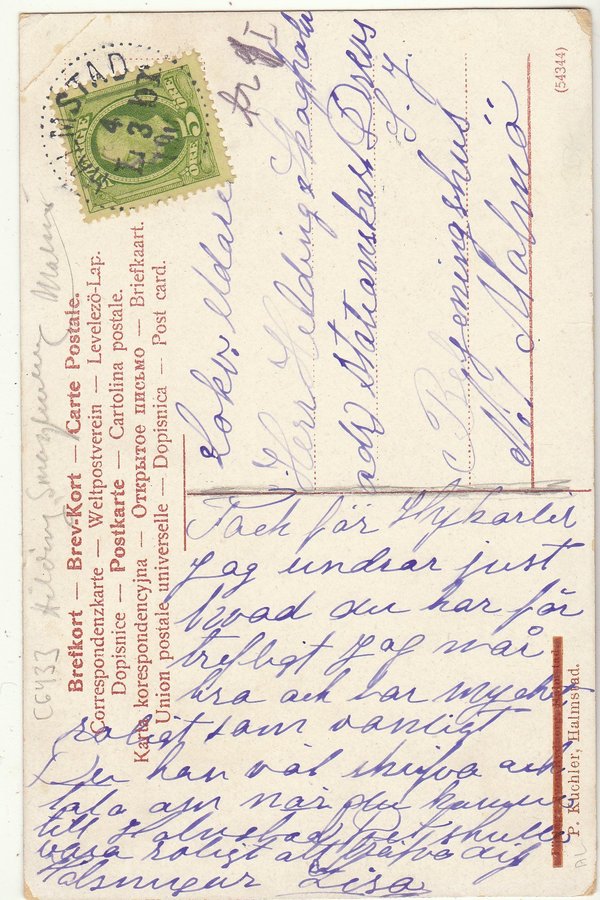 HALMSTAD
4 3 07
SVERIGE
5 ÖRE
(54344)
Brefkort — Brev-Kort — Carte Postale.
Correspondenzkarte — Weltpostverein — Levelezö-Lap.
Dopisnice — Postkarte — Cartolina postale.
Karta korespondencyjna — Открытое письмо — Briefkaart.
Union postale universelle — Dopisnica — Post card.
C6433 Hilding Malmö
Lokv. Eldare
Herr Hilding
adr Stationskarl
S. J.
N. Malmö
Tack för Vykortet
Jag undrar just
hvad du har för
trefligt Jag mår
bra och har mycket
roligt som vanligt
Du kan väl skriva och
tala om när du kommer
till Halmstad Det skulle
vara roligt att träffa dig
Lisa
P. Küchler, Halmstad.